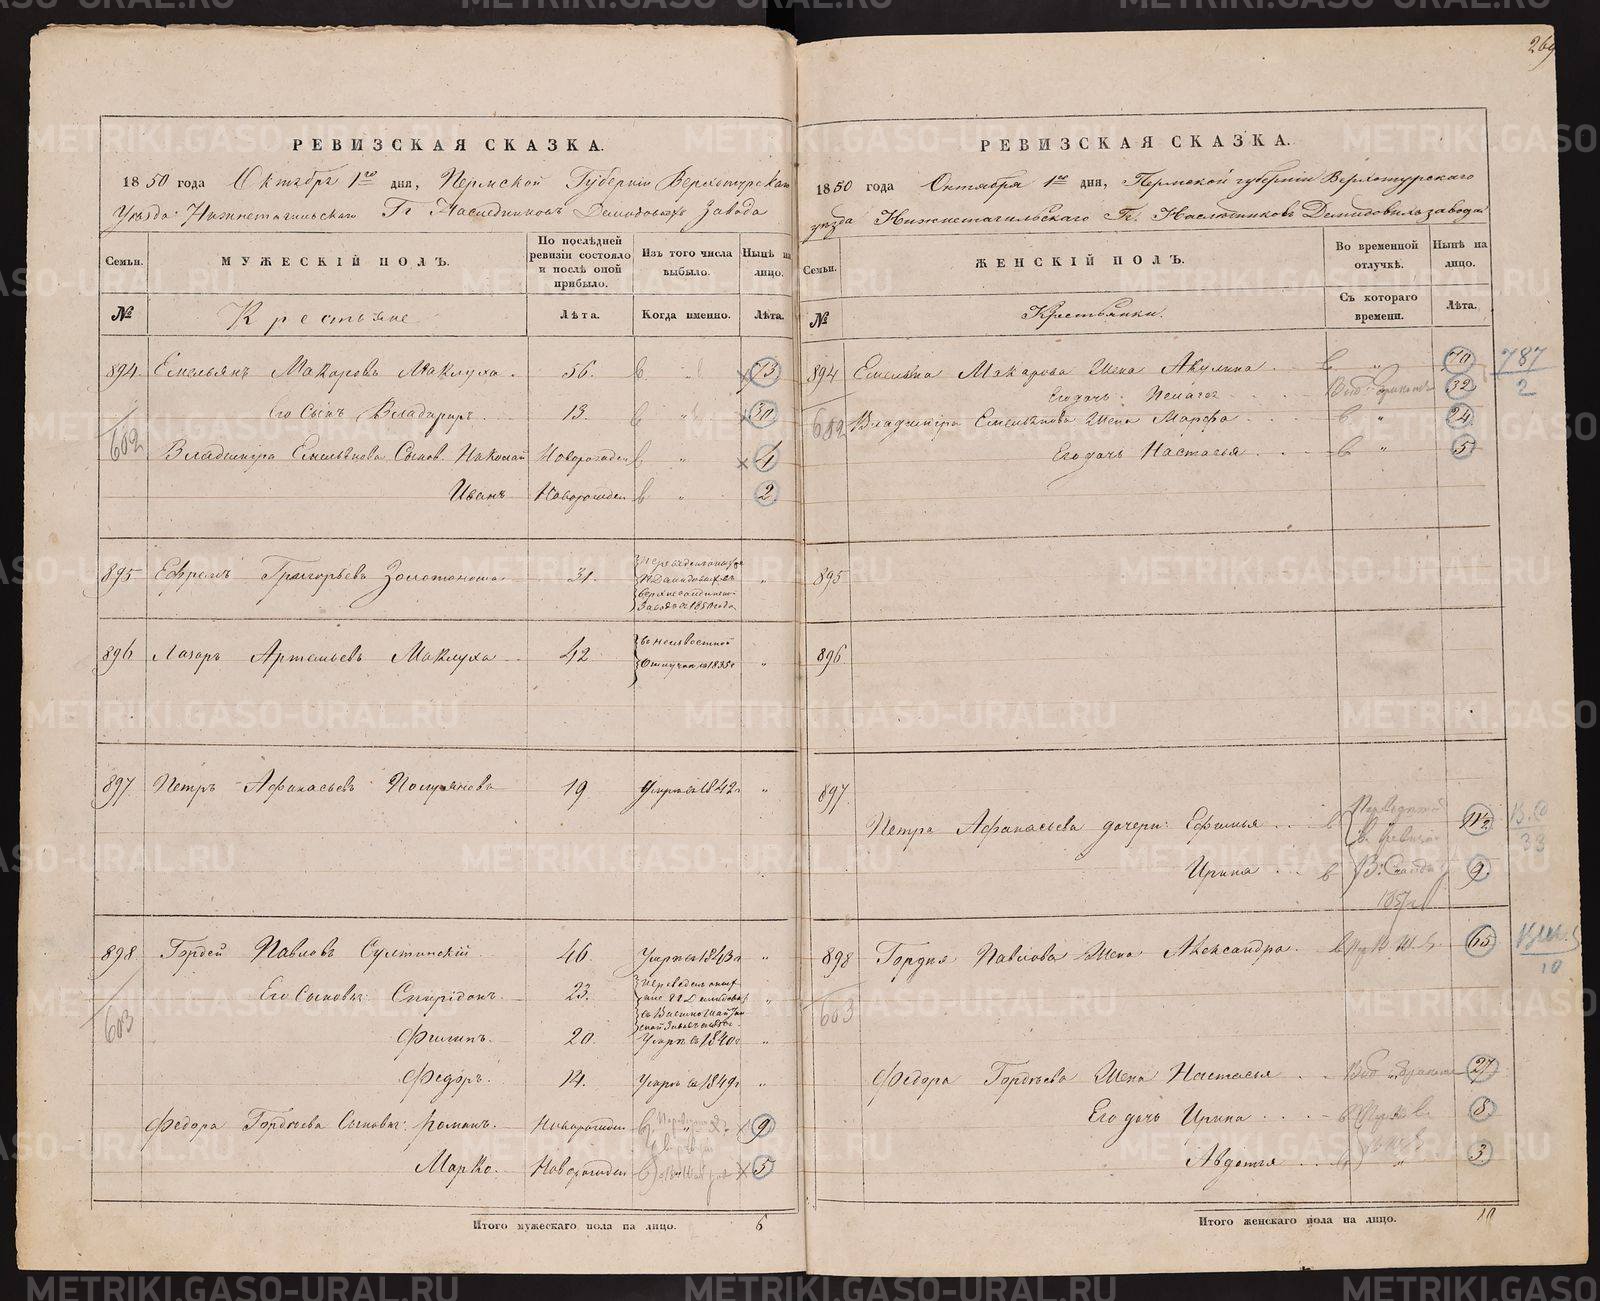 269
РЕВИЗСКАЯ СКАЗКА.
1850 года Октября 1го дня, Пермской Губерніи Верхотурскаго
Уѣзда Нижнетагильскаго Гг Наслѣдниковъ Демидовыхъ Завода
Семьи.
МУЖЕСКІЙ ПОЛЪ.
По послѣдней ревизіи состояло и послѣ оной прибыло.
Изъ того числа выбыло.
Нынѣ на лицо.
№
Крестьяне
Лѣта.
Когда именно.
Лѣта.
894. Емельянъ Макаровъ Маклуха. 56. 73
Его Сынъ Владимиръ. 13. 30
602
Владимира Емельянова Сынов. Николай Новорожден 4
Иванъ Новорожден 2
895 Ефремъ Григорьевъ Золотоноша 31.
896 Лазарь Артемьевъ Маклуха 42 въ неизвестной отлучкѣ съ 1835г
897 Петръ Афанасьевъ 19 Умеръ въ 1842г
898. Гордей Павловъ Султинскій 46. Умеръ въ 1843г
Его Сыновья: Спиридонъ. 23.
603
Филипъ. 20. Умеръ въ 1840г
Федоръ. 14. Умеръ въ 1849г
Федора Гордѣева Сыновья: Романъ. Новорожден 9
Марко. Новорожден 5
Итого мужескаго пола на лицо. 6
РЕВИЗСКАЯ СКАЗКА.
1850 года Октября 1го дня, Пермской губерніи Верхотурскаго
уѣзда Нижнетагильскаго Гг. Наслѣдниковъ Демидовыхъ завода
Семьи.
ЖЕНСКІЙ ПОЛЪ.
Во временной отлучкѣ.
Нынѣ на лицо.
№
Крестьянки.
Съ котораго времени.
Лѣта.
894 Емельяна Макарова Жена Акулина 70
787
2
Его дочь Пелагея 32
602 Владимира Емельянова Жена Марфа 24
Его дочь Настасья 5
895
896
897
Петра Афанасьева дочери: Ефимья 11½
33
Ирина 9
1857г
898 Гордея Павлова Жена Александра. 65
10
603
Федора Гордѣева Жена Настасья 27
Его дочь Ирина 8
Авдотья 3
Итого женскаго пола на лицо. 10
METRIKI.GASO-URAL.RU